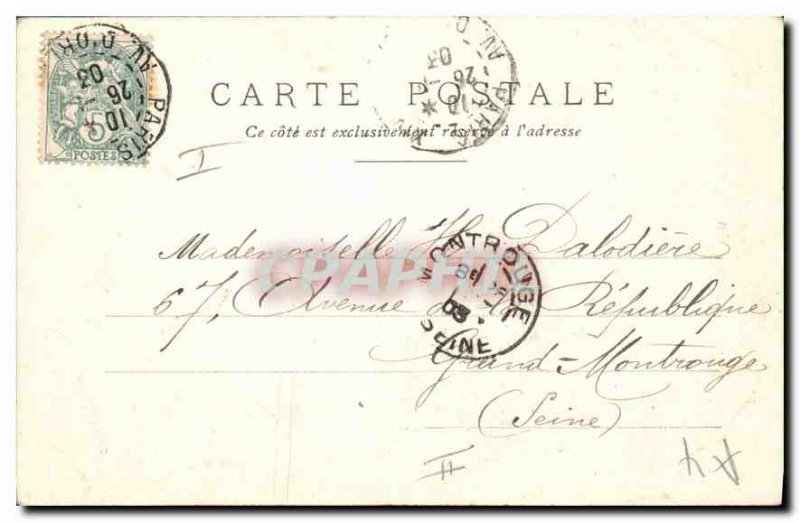 PARIS
AV. D'OR
10
26
03
5
POSTES
CARTE POSTALE
Ce côté est exclusivement réservé à l'adresse
PARIS
AV. D
10
26
03
I
Mademoiselle H. Dalodière
67, Avenue de la République
Grand-Montrouge
(Seine)
MONTROUGE
SEINE
03
CPAPHIL
II
A4